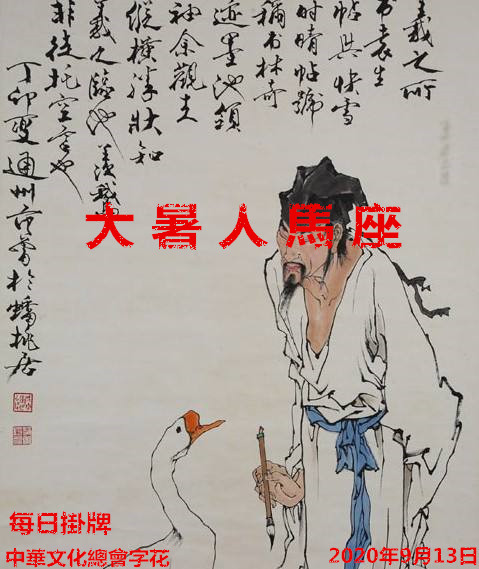 羲之所
书袁生
帖與快雪
時晴帖號
稱书林奇
迹墨池領
袖余觀其
縱橫殊狀知
羲之臨池
非徒托空言也
丁卯夏通州范曾於蟠桃居
大暑人馬座
每日掛牌
中華文化總會字花
2020年9月13日